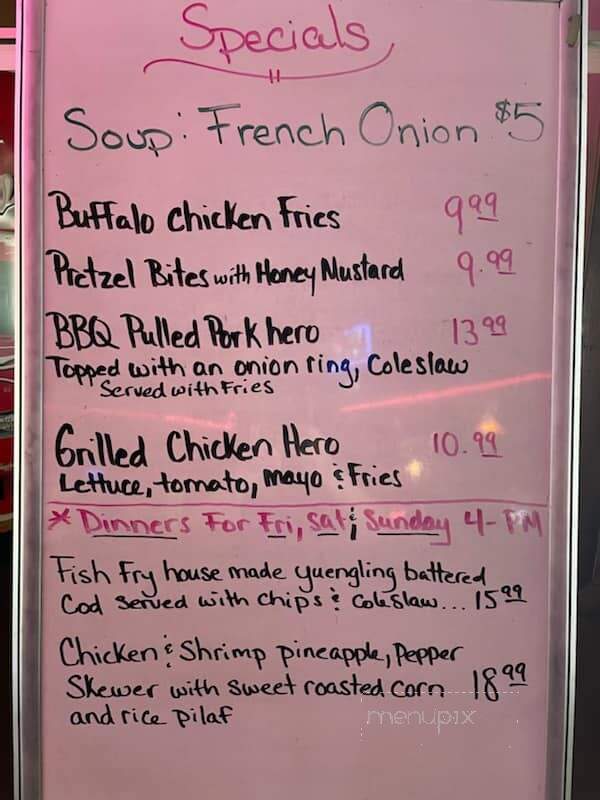 Specials
Soup: French Onion $5
Buffalo Chicken Fries 9 99
Pretzel Bites with Honey Mustard 9.99
BBQ Pulled Pork hero 13 99
Topped with an onion ring, Coleslaw
Served with Fries
Grilled Chicken Hero 10.99
Lettuce, tomato, mayo & Fries
* Dinners For Fri, Sat & Sunday 4-PM
Fish Fry house made yuengling battered
Cod Served with Chips & Coleslaw... 15 99
Chicken & Shrimp pineapple, Pepper
Skewer with sweet roasted corn 18 99
and rice pilaf
menupix